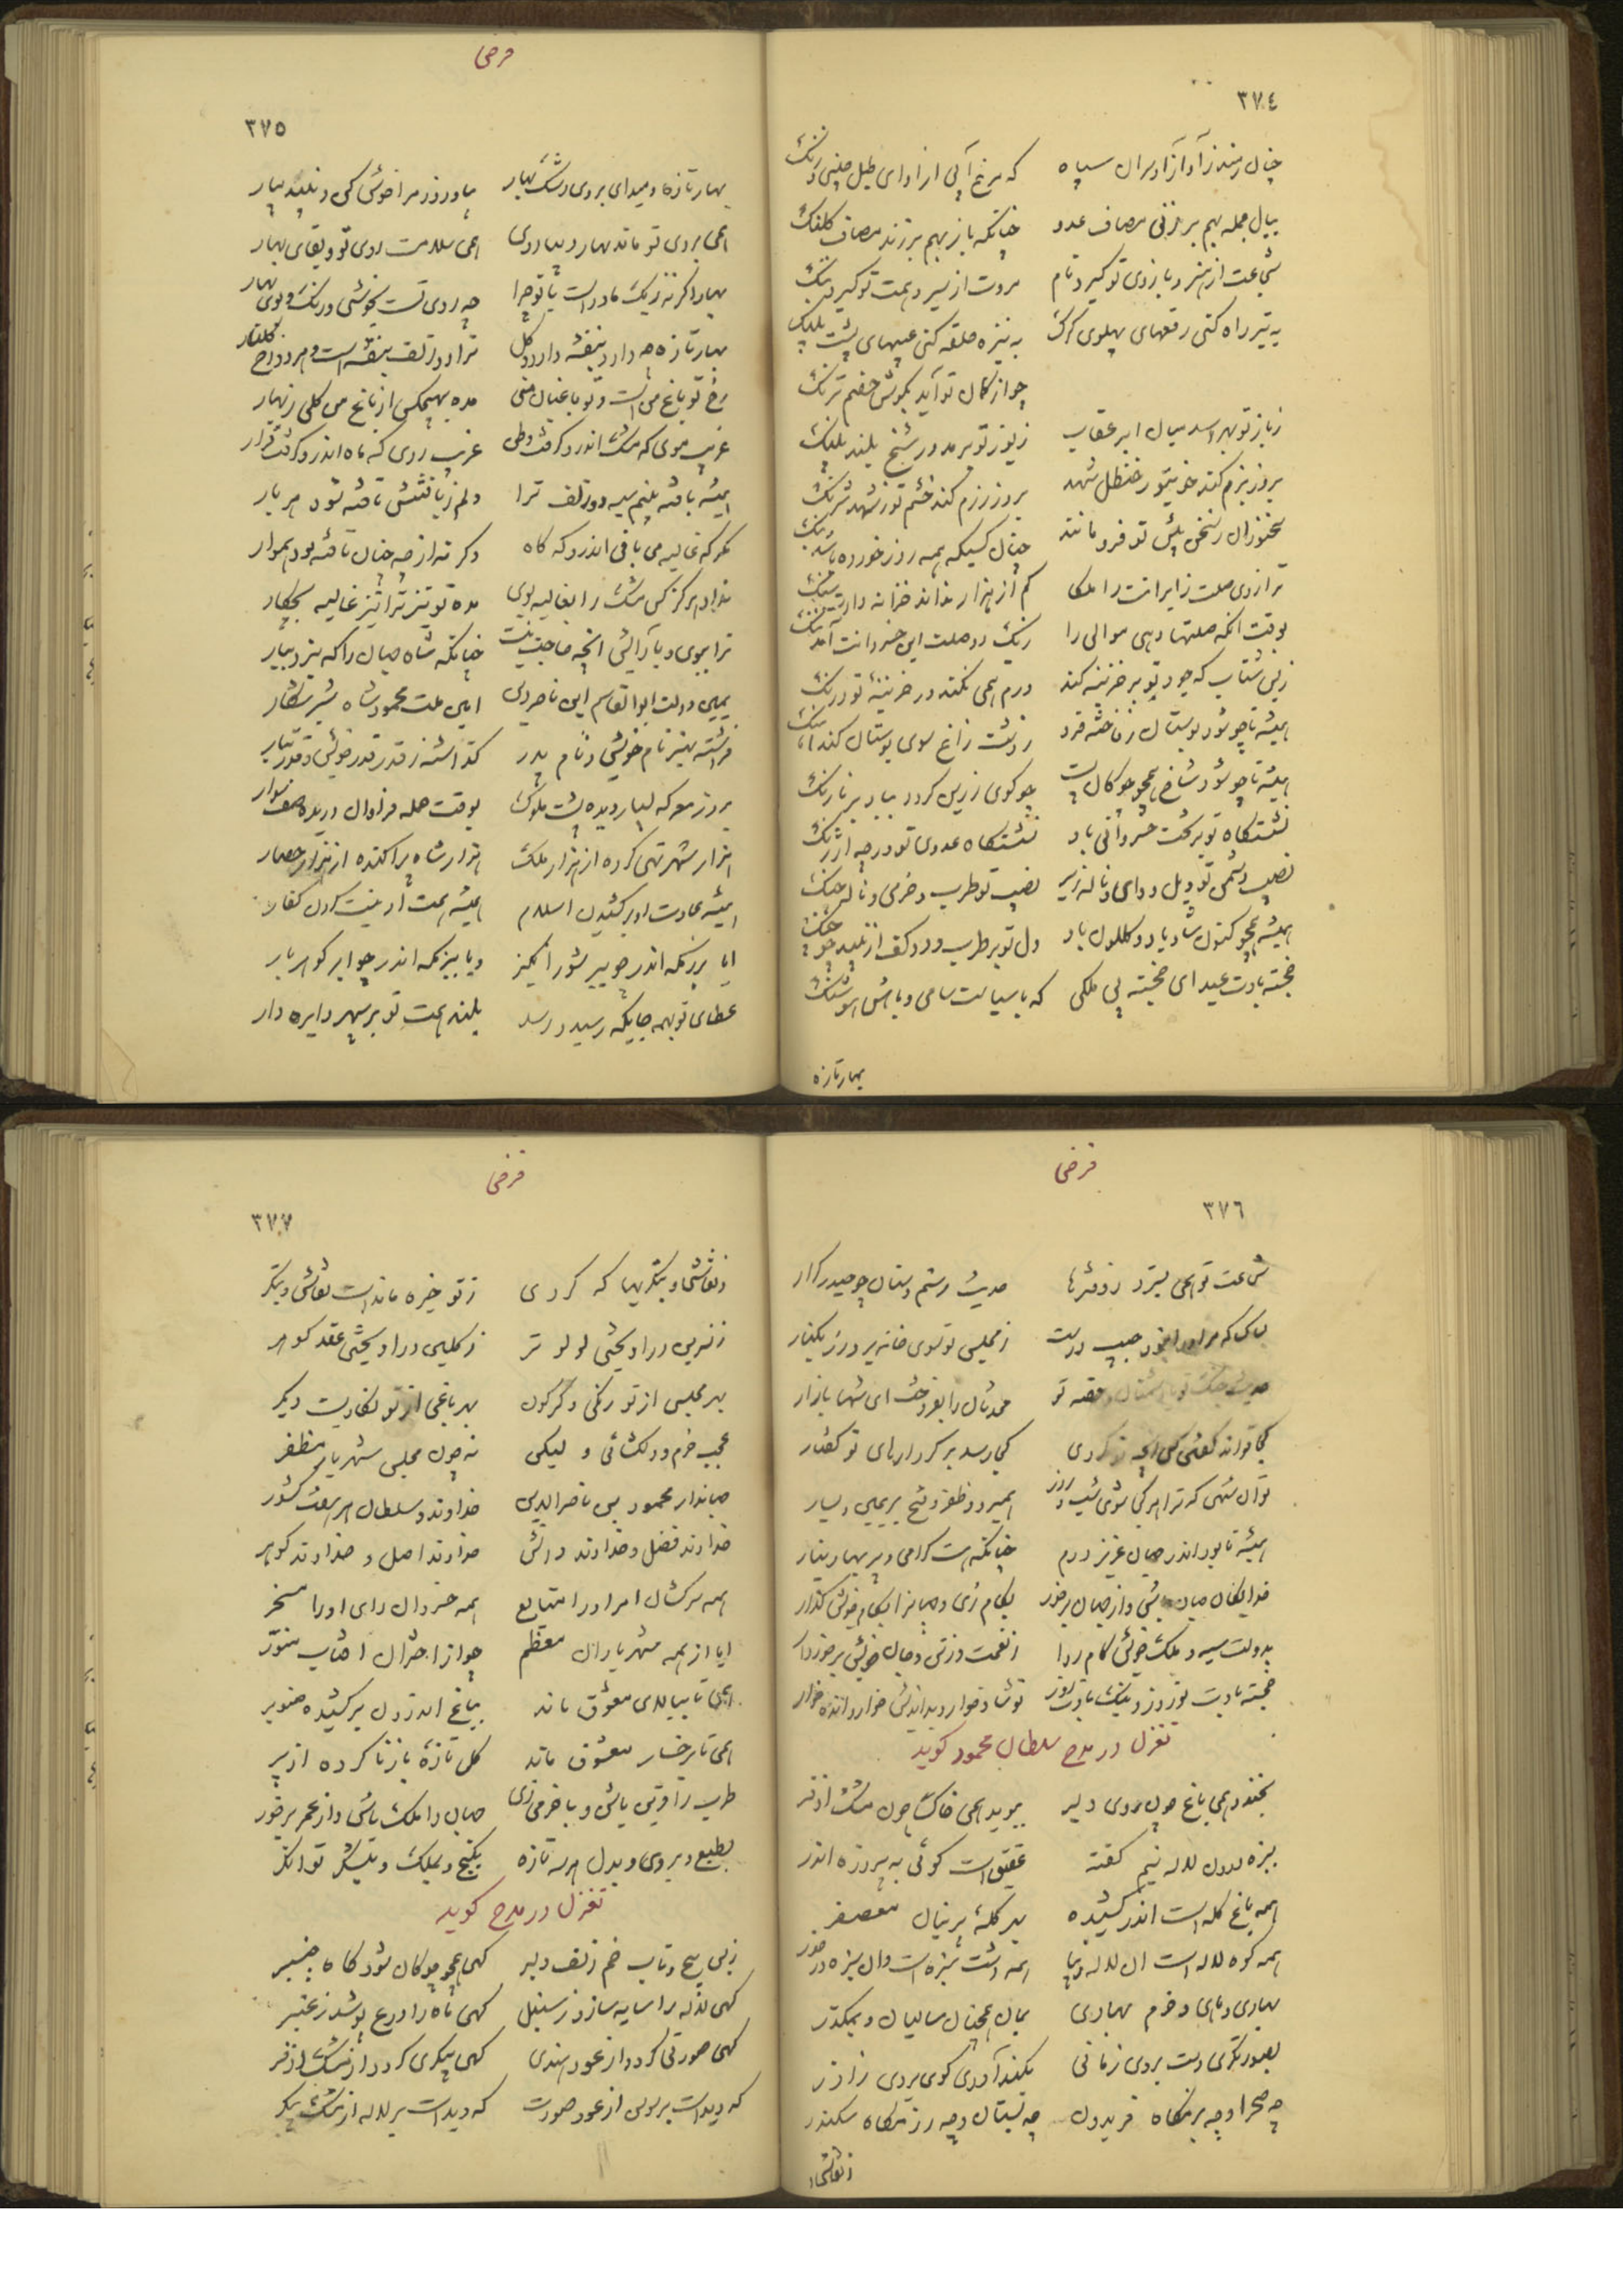 ٣٧٤
چنان رمند ز آواز او سران سپاه که مرغ آبی از آوای طبل
بیان جمله بهم بر زنی مصاف عدو چنانکه باز بهم بر زند مصاف کلنگ
شجاعت از هنر و بازوی تو گیرد نام مروت از سیر و همت تو گیرد
به تیر راه کنی رقمهای پهلوی کرک به نیزه حلقه کنی پشت پلنگ
چو از کمان تو آید بگوش خصم ترنگ
ز باز تو بهراسد میان ابر عقاب ز یوز تو برمد در شخ بلند پلنگ
بروز بزم کند خوی تو ز حنظل شهد بروز رزم کند خشم تو ز شهد شرنگ
سخنوران ز سخن پیش تو فرو مانند چنان کسیکه همه روز خورده باشد بنگ
ترازوی صلت زایرانت را ملکا کم از هزار نداند خزانه دار تو سنگ
بوقت آنکه صلتها دهی موالی را
زبس شتاب که جود تو بر خزینه کند درم همی نکند در خزینهٔ تو درنگ
همیشه تا چو شود بوستان ز فاخته فرد ز دشت زاغ سوی بوستان کند آهنگ
همیشه تا چو شود شاخ همچو چوکان پست چو کوی زرین گردد بباد بر نارنگ
نشستگاه تو بر تخت خسروانی باد نشستگاه عدوی تو در چه ارژنگ
نصیب دشمن تو ویل و وای و ناله زیر نصیب تو طرب و خرمی و ناله چنگ
همیشه همچو کنون شاد باد و گلگون باد دل تو بر طرب و دو کف از نبید چو زنگ
خجسته بادت عید ای خجسته پی ملکی که با سیاست سامی و با هش هوشنگ
بهار تازه
فرخی
٣٧٥
بهار تازه دمید ای بروی رشک بهار بیا و روز مرا خوش کن و نبید بیار
همی بروی تو ماند بهار دیبا روی همی سلامت روی تو و بقای بهار
بهار اگر نه ز یک مادر است با تو چرا چو روی تست بخوشی و رنگ و بوی بهار
بهار تازه چه دارد بنفشه دارد و گل ترا دو زلف بنفشه است و هر دو رخ گلنار
رخ تو باغ من است و تو باغبان منی مده بهیچکس از باغ من گلی زنهار
غریب موی که مشک اندرو گرفت وطن غریب روی که ماه اندرو گرفت قرار
همیشه بافته بینم سیه دو زلف ترا دلم ز بافتنش تافته شود هر بار
مگر که غالیه می بافی اندرو که گاه وگرنه از چه چنان تافته بود هموار
نداد هرگز کس مشک را بغالیه بوی مده تو نیز ترا نیز غالیه بچکار
ترا ببوی و بآرایش آنچه حاجت نیست چنانکه شاه جهان را که نبرد بیار
یمین دولت ابوالقاسم ابن ناصر دین امین ملت محمود شاه شیر شکار
فراشته بهنر نام خویش و نام پدر گذاشته ز قدر قدر خویش و قدر تبار
بروز معرکه بسیار دیده پشت ملوک بوقت حمله فراوان دریده صف سوار
هزار شهر تهی کرده از هزار ملک هزار شاه پراکنده از هزار حصار
همیشه عادت او برکشیدن اسلام همیشه همت او نیست کردن کفار
ایا برزمگه اندر چو ببر شورانگیز ویا ببزمگه اندر چو ابر گوهر بار
عطای تو بهمه جایگه رسید و رسد بلند همت تو بر سپهر دایره وار
فرخی
٣٧٦
شجاعت تو همی بسترد ز دفترها حدیث رستم دستان و حیدر کرار
بسا کسا که مر او را بخود حبیب دوست ز مجلس تو سوی خانه برد زر بکنار
حدیث جنگ تو با دشمنان و قصهٔ تو محدثان را بفروخت ای شها بازار
کجا تواند گفتن کس آنچه تو کردی کجا رسد بر کردارهای تو گفتار
تو آن شهی که ترا هر کجا شوی شب و روز همی رود ظفر و فتح بر یمین و یسار
همیشه تا بود اندر جهان عزیز درم چنانکه هست گرامی و پر بها دینار
خدایگان جهان باش و از جهان بر خور بکام زی و جهانرا بکام خویش گذار
بدولت سپه و ملک خویش کام روا ز نعمت و ز تن و جان خویش برخوردار
خجسته بادت نوروز و نیک بادت روز تو شاد خوار و بد اندیش خوار و انده خوار
تغزل در مدح سلطان محمود گوید
بخندد همی باغ چون روی دلبر ببوید همی خاک چون مشک اذفر
بسبزه درون لالهٔ نیم کفته عقیق است گوئی به پیروزه اندر
همه باغ کله است اندر کشیده بهر کلهٔ پرنیان معصفر
همه کوه لاله است آن لاله زیبا همه دشت سبزه است و آن سبزه در خور
بهاری و ماهی و خرم بهاری بمان همچنان سالیان و بمگذر
بصورتگری دست بردی ز مانی یکند آوری گوی بردی ز آذر
چه صحرا و چه بزمگاه فریدون چه بستان و چه رزمگاه سکندر
ز نقاشی
فرخی
٣٧٧
ز نقاشی و بتگریها که کردی ز تو خیره مانده است نقاش و بتگر
ز نسرین در آویختی لولو تر ز گلبن در آویختی عقد گوهر
بهر مجلس از تو رنگی دگرگون بهر باغی از تو نگاریست دیگر
عجب خرم و دلگشائی و لیکن نه چون مجلس شهریار مظفر
جهاندار محمود بن ناصرالدین خداوند و سلطان هر هفت کشور
خداوند فضل و خداوند دانش خداوند اصل و خداوند گوهر
همه سرکشان امر او را متابع همه خسروان رای او را مسخر
ایا از همه شهریاران معظم چو از اختران آفتاب منور
همی تا ببالای معشوق ماند بباغ اندرون برکشیده صنوبر
همی تا برخسار معشوق ماند گل تازهٔ باز ناکرده از بر
طرب را قرین باش و با خرمی زی جهان را ملک باش و از عمر بر خور
بطبع و بروی و بدل هر سه تازه بگنج و بملک و بلشکر توانگر
تغزل در مدح گوید
زبس پیچ و تاب خم زلف دلبر گهی همچو چوگان شود گاه چنبر
گهی لاله را سایه سازد ز سنبل گهی ماه را درع پوشد ز عنبر
گهی صورتی گردد از عود هندی گهی پیکری گردد از مشک اذفر
که دید است بر سوسن از عود صورت که دید است بر لاله از مشک پیکر